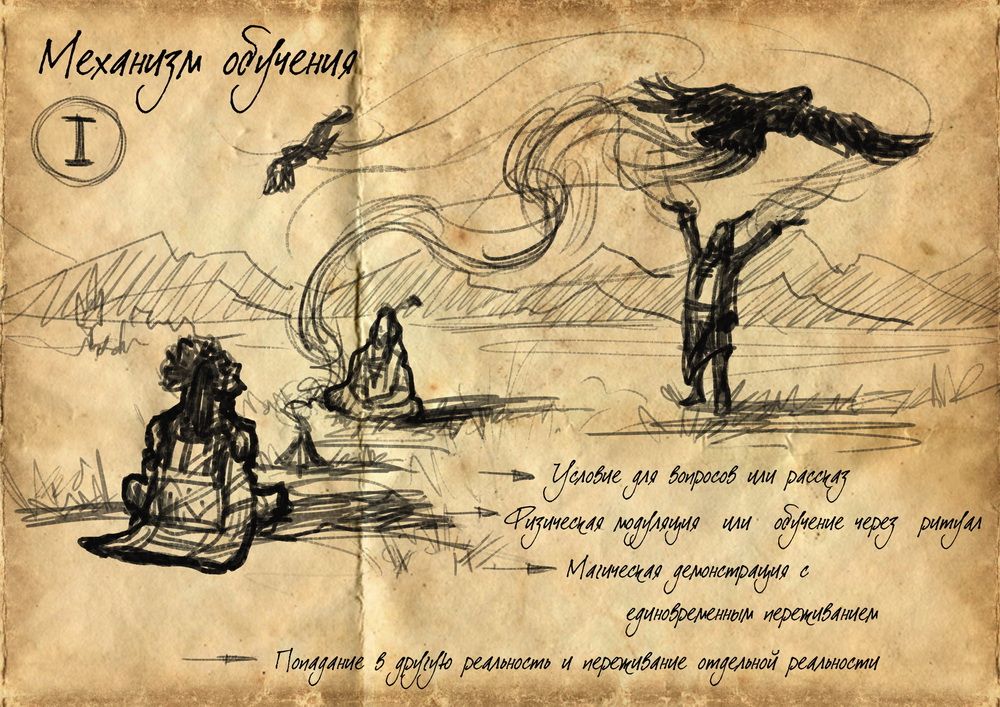 Механизм обучения
I
Условие для вопросов или рассказ
Физическая модуляция или обучение через ритуал
Магическая демонстрация с
единовременным переживанием
Попадание в другую реальность и переживание отдельной реальности